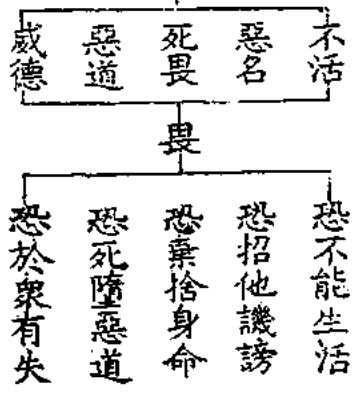 不活
惡名
死畏
惡道
威德
畏
恐不能生活
恐招他譏謗
恐棄捨身命
恐死墮惡道
恐於眾有失